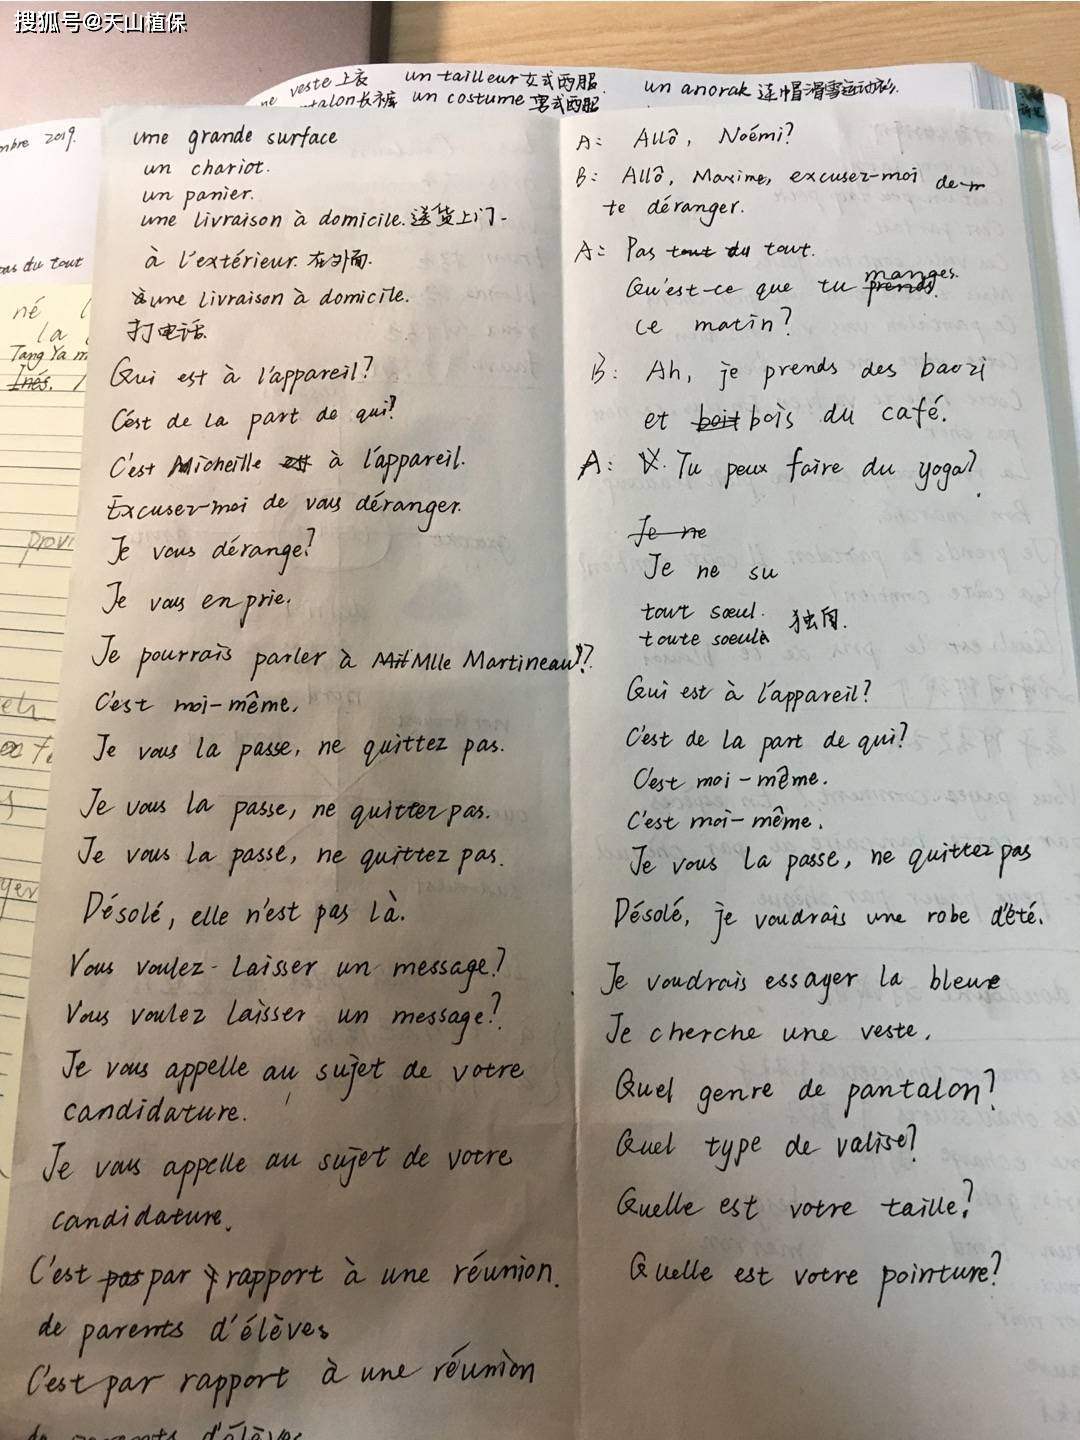 搜狐号@天山植保
veste 上衣 un tailleur 女式西服. un anorak 连帽滑雪运动衫.
talon 长裤 un costume 男式西服
mbre 2019.
pas du tout
né
la
Tang Ya m
Inés.
provi
une grande surface
un chariot.
un panier.
une livraison à domicile. 送货上门-
à l'extérieur. 在外面.
à une livraison à domicile.
打电话.
Qui est à l'appareil?
C'est de la part de qui?
C'est Micheille est à l'appareil.
Excusez-moi de vous déranger.
Je vous dérange?
Je vous en prie.
Je pourrais parler à Mil Mlle Martineau?
C'est moi-même.
Je vous la passe, ne quittez pas.
Je vous la passe, ne quittez pas.
Je vous la passe, ne quittez pas.
Désolé, elle n'est pas là.
Vous voulez-laisser un message?
Vous voulez laisser un message?
Je vous appelle au sujet de votre
candidature.
Je vous appelle au sujet de votre
candidature.
C'est pas par rapport à une réunion.
de parents d'élèves
C'est par rapport à une réunion
de parents d'élèves
A: Allô, Noémi?
B: Allô, Maxime, excusez-moi de m
te déranger.
A: Pas tout du tout.
manges.
Qu'est-ce que tu prends.
ce matin?
B: Ah, je prends des baozi
et boit bois du café.
A: V. Tu peux faire du yoga?
Je ne
Je ne su
tout sœul. 独自.
toute soeule
Qui est à l'appareil?
C'est de la part de qui?
C'est moi-même.
C'est moi-même.
Je vous la passe, ne quittez pas
Désolé, je voudrais une robe d'été.
Je voudrais essayer la bleue
Je cherche une veste.
Quel genre de pantalon?
Quel type de valise?
Quelle est votre taille?
Quelle est votre pointure?